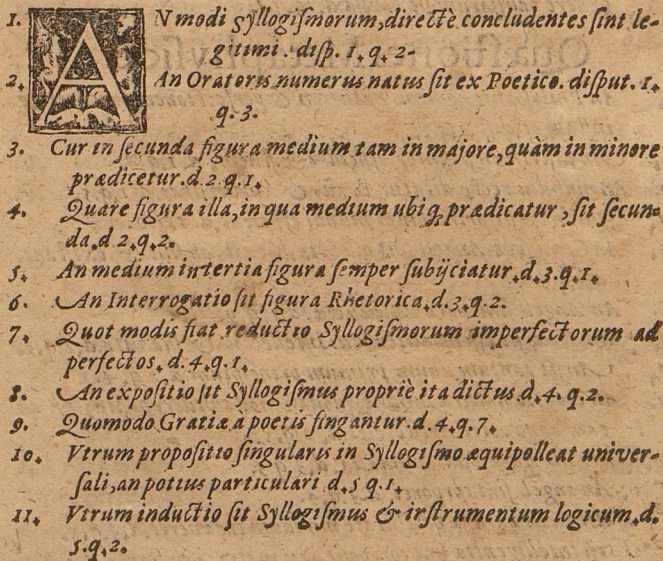 1. AN modi Syllogiſmorum, directè concludentes ſint le-
gitimi. diſp. 1. q. 2.
2. An Oratoris numerus natus ſit ex Poetico. diſput. 1.
q. 3.
3. Cur in ſecunda figura medium tam in majore, quàm in minore
prædicetur. d. 2. q. 1.
4. Quare figura illa, in qua medium ubiq; prædicatur, ſit ſecun-
da. d. 2. q. 2.
5. An medium in tertia figura ſemper ſubijciatur. d. 3. q. 1.
6. An Interrogatio ſit figura Rhetorica. d. 3. q. 2.
7. Quot modis fiat reductio Syllogiſmorum imperfectorum ad
perfectos. d. 4. q. 1.
8. An expoſitio ſit Syllogiſmus propriè ita dictus. d. 4. q. 2.
9. Quomodo Gratiæ à poetis fingantur. d. 4. q. 7.
10. Vtrum propoſitio ſingularis in Syllogiſmo æquipolleat univer-
ſali, an potius particulari. d. 5 q. 1.
11. Vtrum inductio ſit Syllogiſmus & irſtrumentum logicum. d.
5. q. 2.